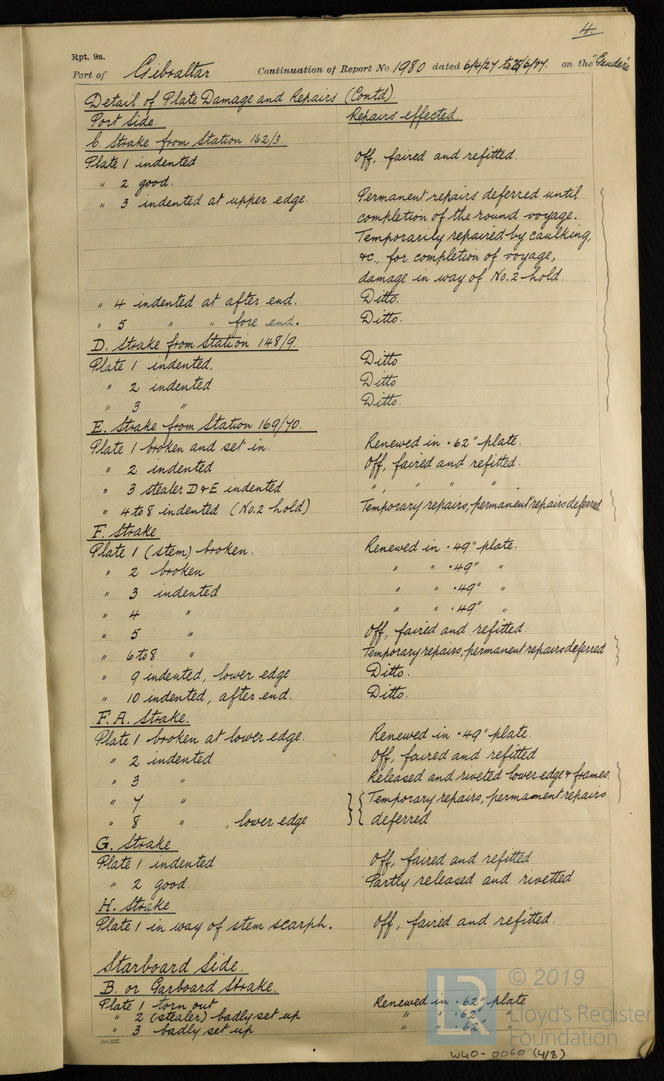 4.
Rpt. 9a.
Port of Gibraltar Continuation of Report No. 1980 dated 6/4/27 to 28/6/27. on the "Gandara
Detail of Plate Damage and Repairs (Contd).
Port Side. Repairs effected.
C. Strake from Station 162/3.
Plate 1 indented Off, faired and refitted.
" 2 good.
" 3 indented at upper edge. Permanent repairs deferred until
completion of the round voyage.
Temporarily repaired by caulking,
&c., for completion of voyage,
damage in way of No. 2 hold.
" 4 indented at after end. Ditto.
" 5 " " fore end. Ditto.
D. Strake from Station 148/9.
Plate 1 indented. Ditto
" 2 indented Ditto
" 3 " Ditto.
E. Strake from Station 169/70.
Plate 1 broken and set in. Renewed in .62" plate.
" 2 indented Off, faired and refitted.
" 3 stealer D & E indented " , " " " "
" 4 to 8 indented (No. 2 hold) Temporary repairs, permanent repairs deferred
F. Strake
Plate 1 (stem) broken. Renewed in .49" plate.
" 2 broken " " .49" "
" 3 indented " " .49" "
" 4 " " " .49" "
" 5 " Off, faired and refitted.
" 6 to 8 " Temporary repairs, permanent repairs deferred
" 9 indented, lower edge Ditto.
" 10 indented, after end. Ditto.
F.A. Strake.
Plate 1 broken at lower edge. Renewed in .49" plate.
" 2 indented Off, faired and refitted
" 3 " Released and riveted lower edge & frames.
" 7 " Temporary repairs, permanent repairs
" 8 " , lower edge deferred
G. Strake
Plate 1 indented Off, faired and refitted
" 2 good. Partly released and rivetted
H. Strake
Plate 1 in way of stem scarph. Off, faired and refitted.
Starboard Side.
B. or Garboard Strake
Plate 1 torn out Renewed in .62" plate
" 2 (stealer) badly set up " " .62" "
" 3 badly set up " " .62 "
© 2019
LR
Lloyd's Register
Foundation
W40-0060 (4/8)